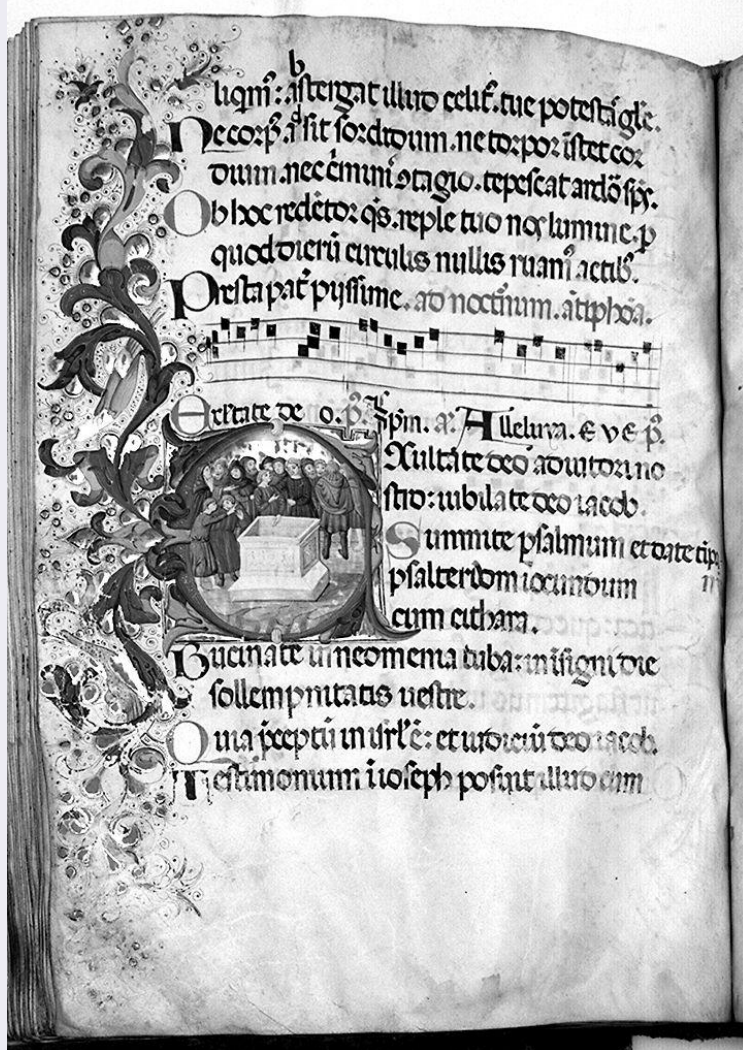 b
liqm̄: abstergat illud celit̄. tue potestā głe.
Ne corp̄. adsit sordidum. ne torpor īstet cor
dium. nec c̄minis ꝯtagio. tepescat ardō sp̄s.
Ob hoc redētor q̄s. reple tuo nos lumine. p
quod dierū circulis nullis ruam̄ actib.
Presta pat̄ pijssime. ad noct̄num. ātiphōa.
Exultate deo. p̄. sp̄m. a. Alleluya. E v E p̄.
Exultate deo adiutori no
stro: iubilate deo iacob.
Summite psalmum et date tīpa
num
psalterium iocundum
cum cithara.
Bucinate in neomenia tuba: in īsigni die
sollempnitatis uestre.
Quia p̄ceptū in isrł ē: et iudiciū deo iacob.
Testimonium ī ioseph posuit illud cum